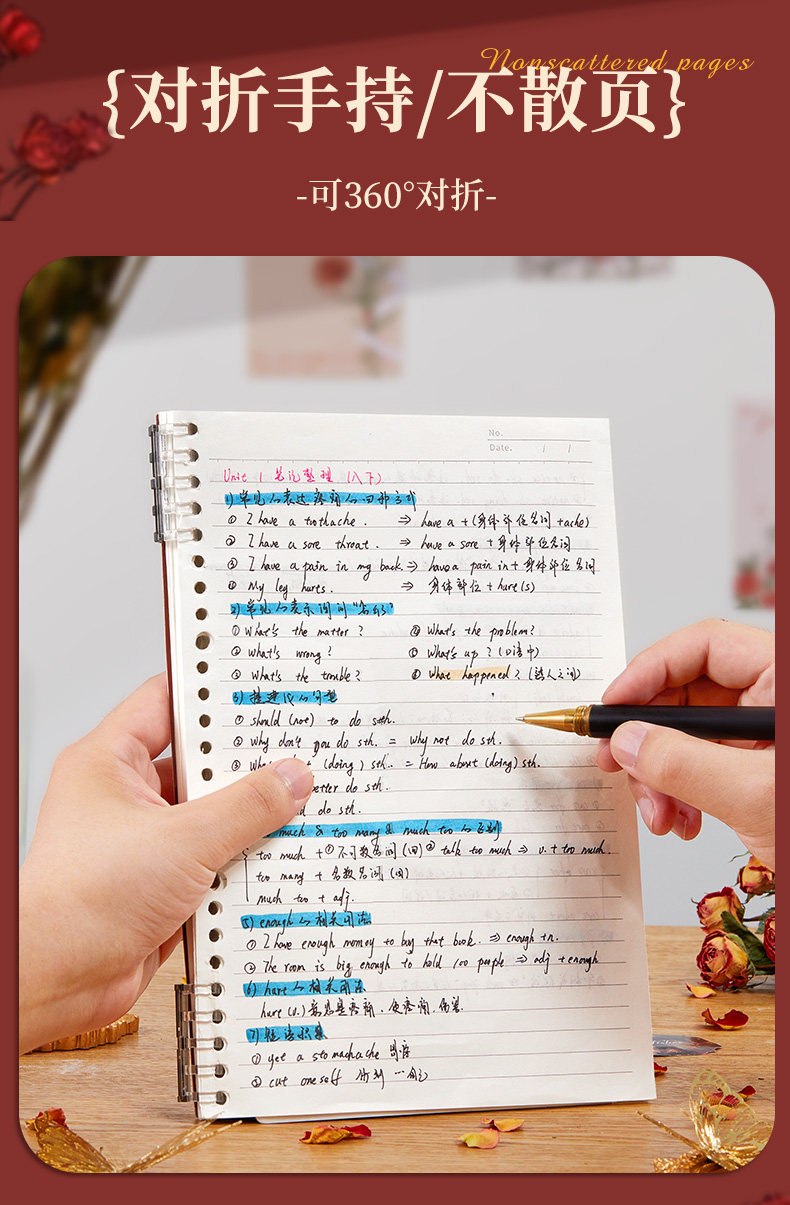 Nonscattered pages
{对折手持/不散页}
-可360°对折-
No.
Date. / /
Unit 1 笔记整理 (八下)
1) 常见的表达疼痛的四种方式
① I have a toothache. ⇒ have a + (身体部位名词 +ache)
② I have a sore throat. ⇒ have a sore + 身体部位名词
③ I have a pain in my back. ⇒ have a pain in + 身体部位名词
④ My leg hurts. ⇒ 身体部位 + hurt(s)
2) 常见的表示询问
① What's the matter? ④ What's the problem?
② What's wrong? ⑤ What's up? (口语中)
③ What's the trouble? ⑥ What happened? (熟人之间)
3) 提建议的句型
① should (not) to do sth.
② Why don't you do sth. = Why not do sth.
③ (doing) sth. = How about (doing) sth.
better do sth.
do sth.
much & too many & much too 的区别
too much + ① 不可数名词 (回) ② talk too much ⇒ v. + too much.
too many + 名数名词 (回)
much too + adj.
5) enough 的相关用法
① I have enough money to buy that book. ⇒ enough + n.
② The room is big enough to hold 100 people ⇒ adj + enough
6) hurt 的相关用法
hurt (v.)
7)
① get a stomachache
② cut oneself